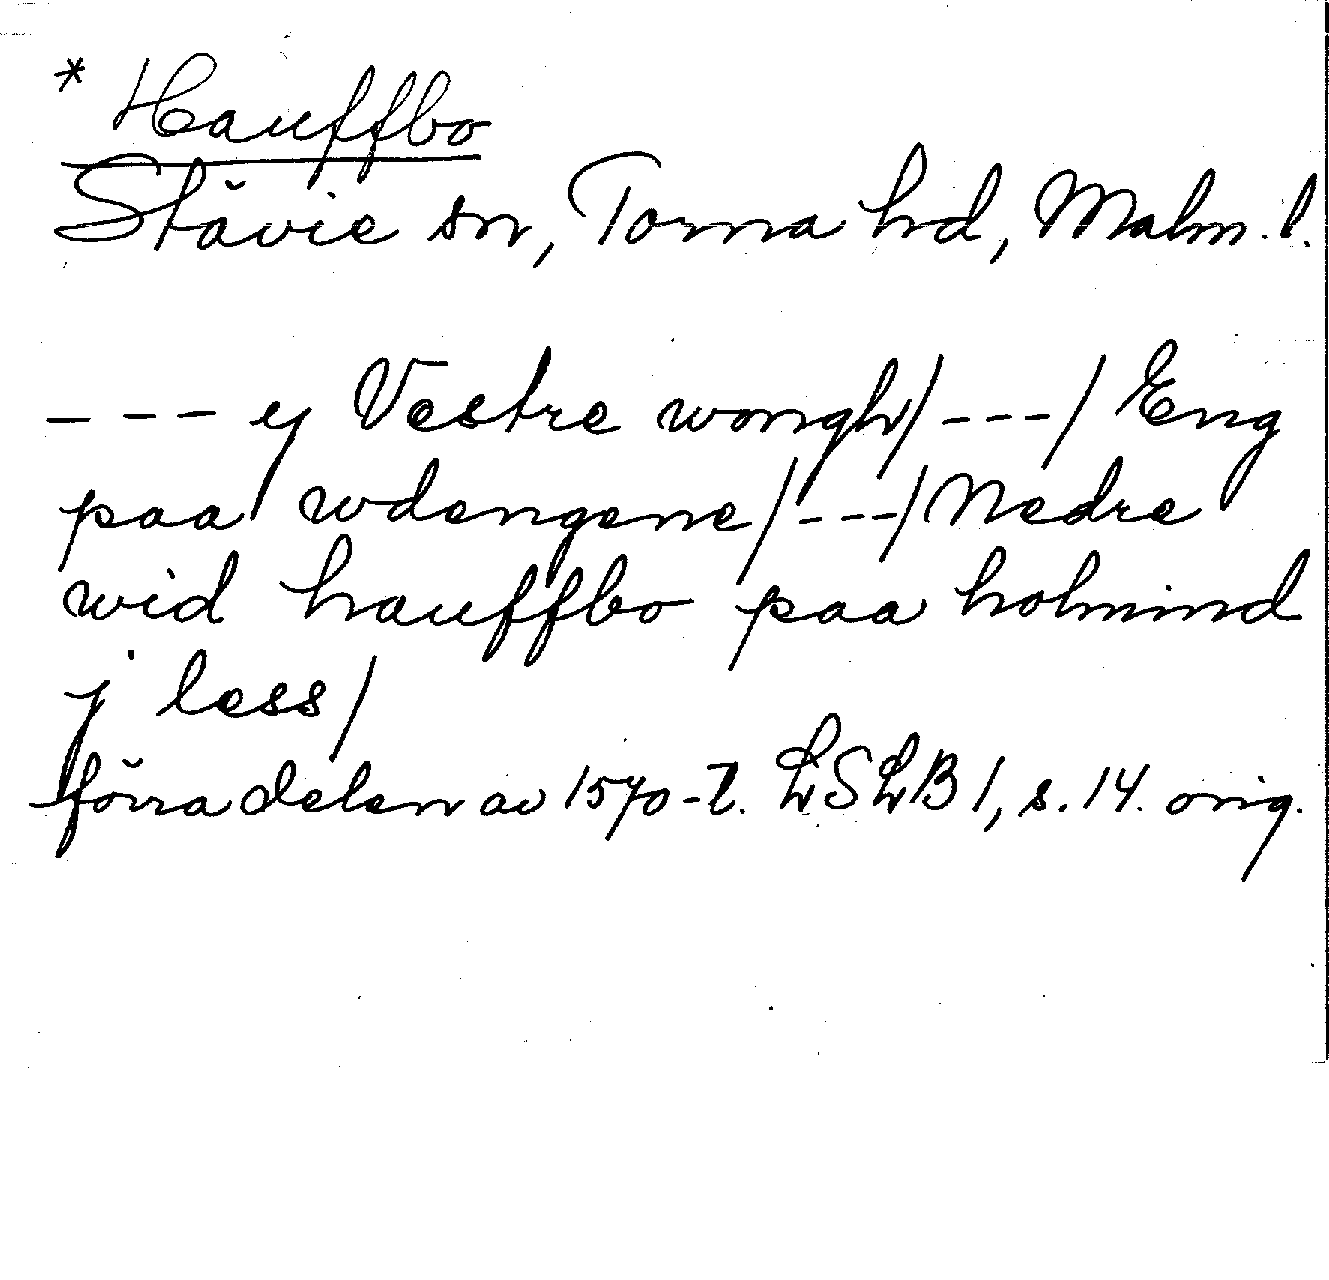 * Hauffbo
Stävie sn, Torna hd, Malm. l.
--- y Vestre wongh/---/ Eng
paa wdengene/---/Nedre
wid hauffbo paa holmind
j less/
förra delen av 1570-t. LSLB 1, s. 14. orig.